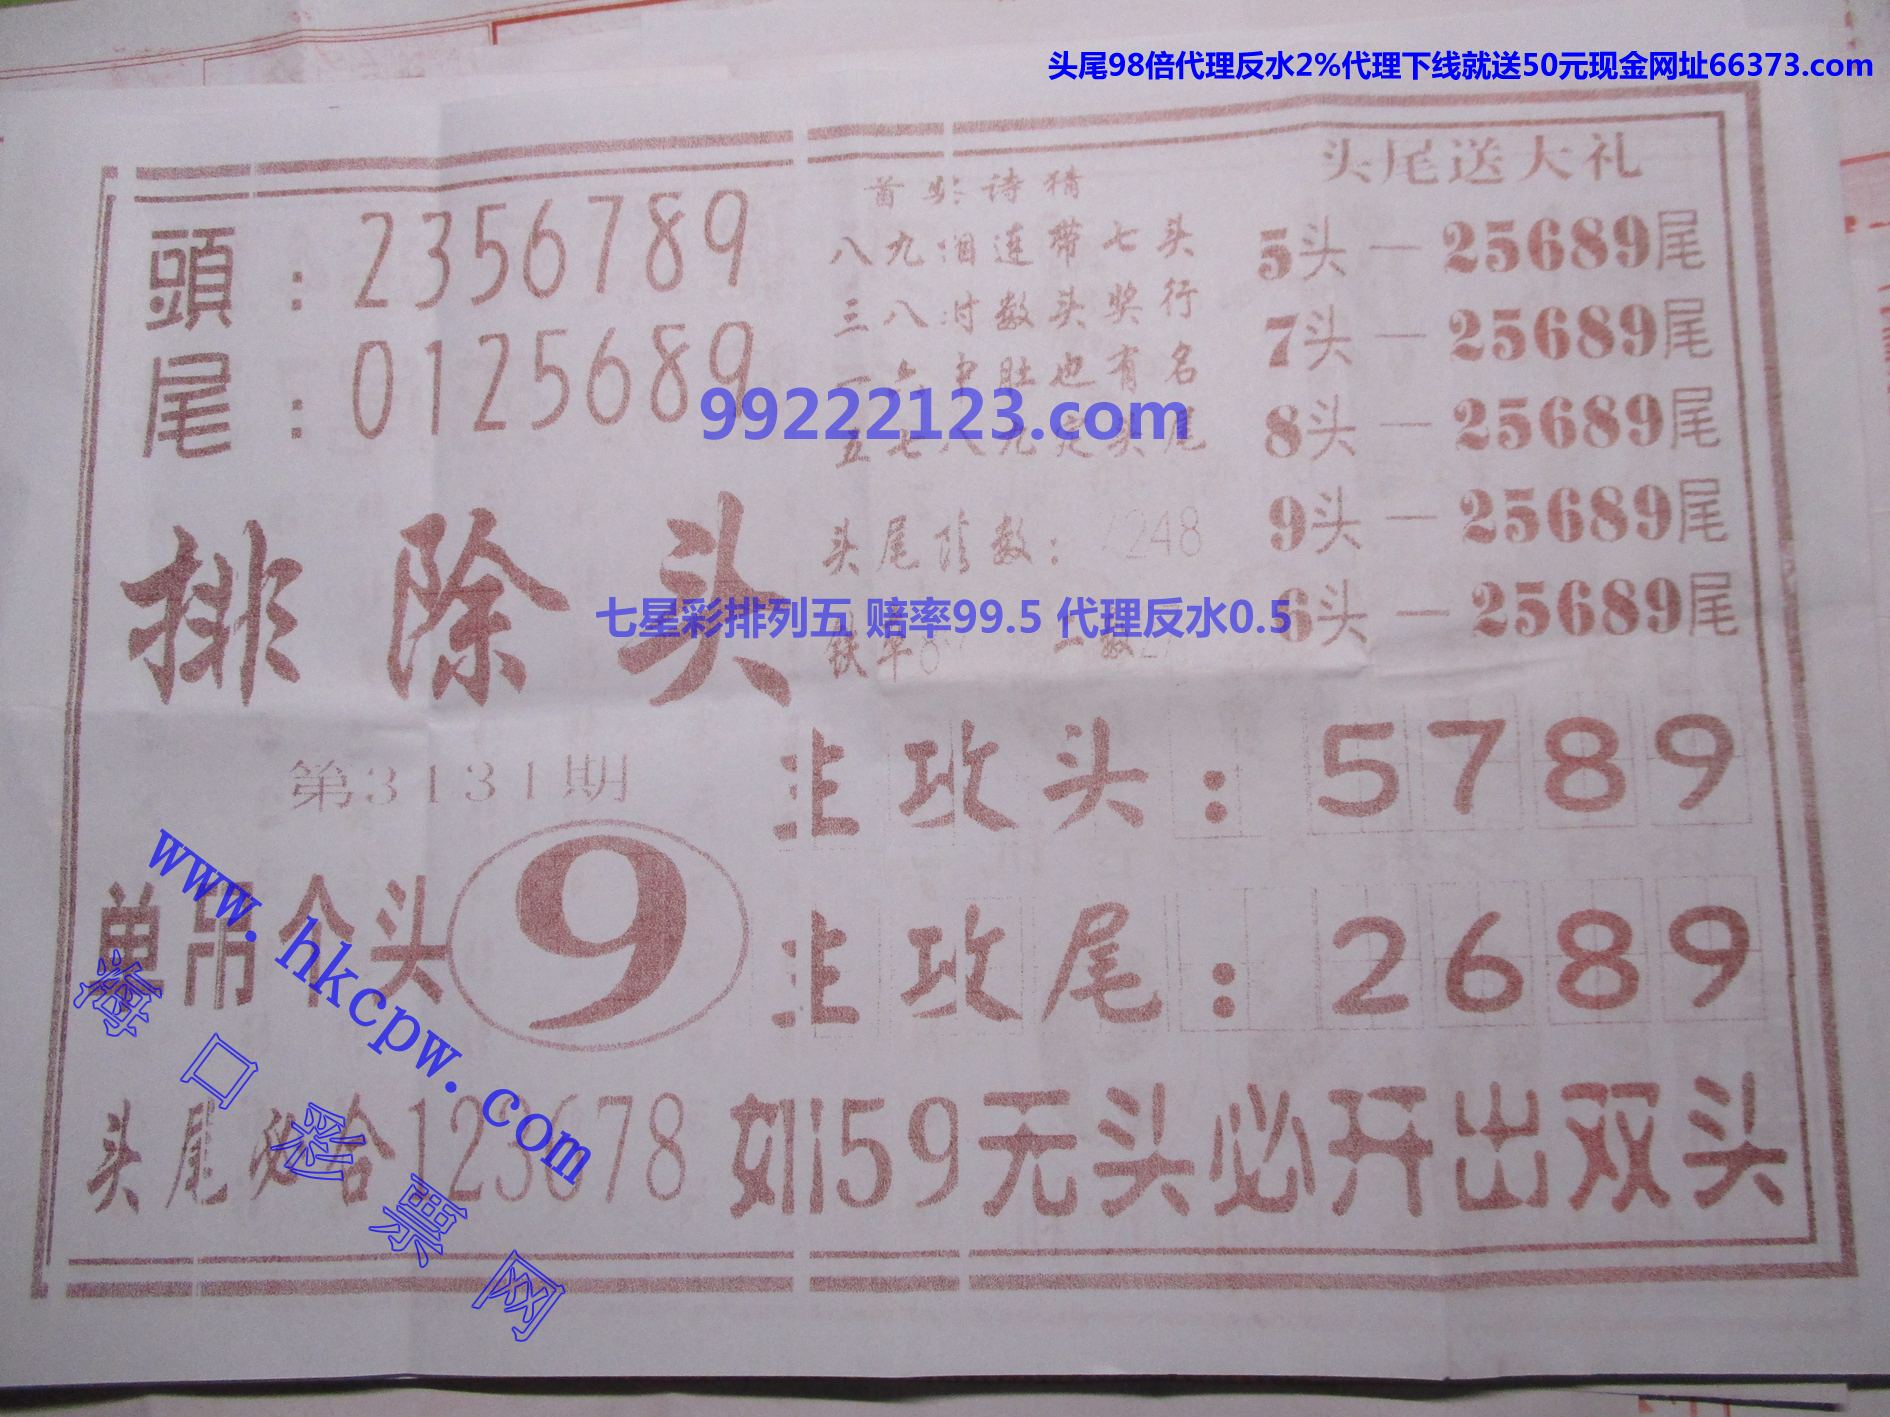 头尾98倍代理反水2%代理下线就送50元现金网址66373.com
頭：2356789
尾：0125689
首奖诗猜
八九相连带七头
三八对数头奖行
一六中肚也有名
五七八九定头尾
头尾送大礼
5头—25689尾
7头—25689尾
8头—25689尾
9头—25689尾
6头—25689尾
99222123.com
排除头
头尾 数：248
七星彩排列五 赔率99.5 代理反水0.5
铁率
二数
第3131期
主攻头：5789
单吊个头 9
主攻尾：2689
头尾必合123678 如59无头必开出双头
www.hkcpw.com
海口彩票网